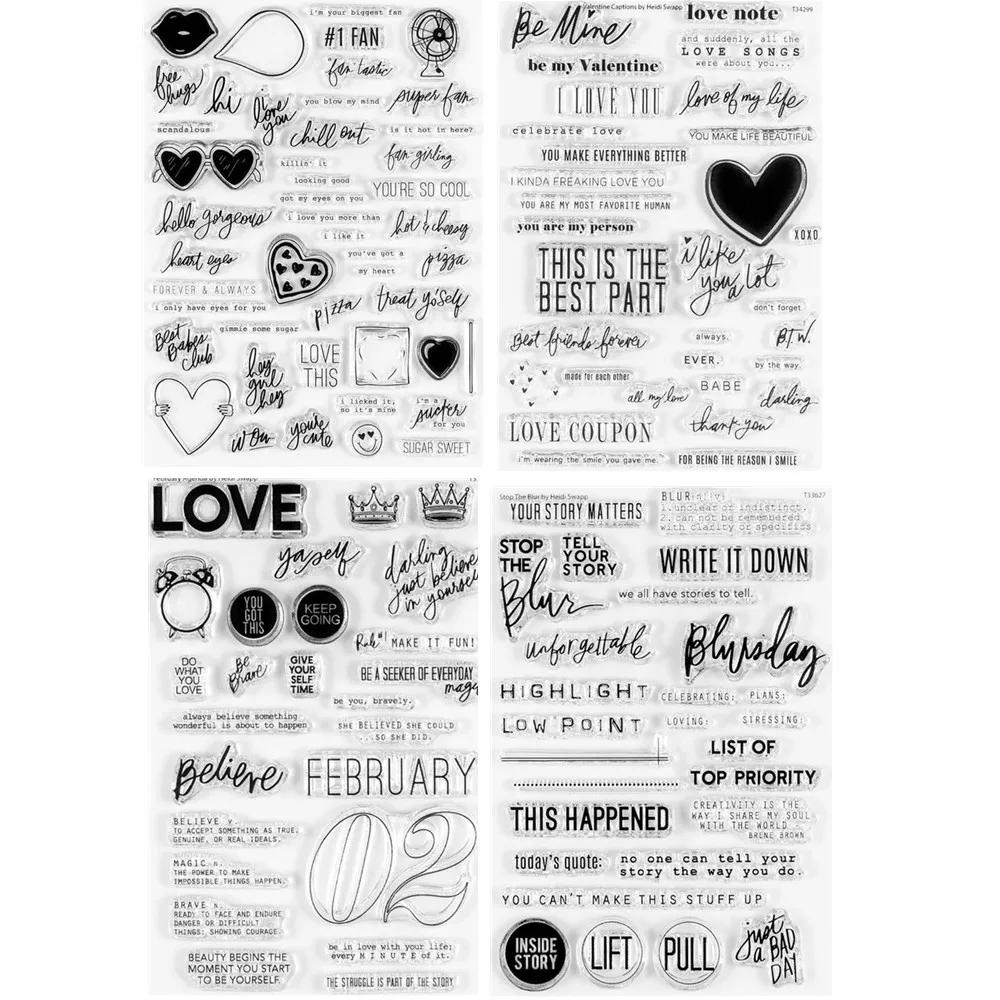 i'm your biggest fan
#1 FAN
fan tastic
free hugs
hi
i love you
you blow my mind
super fan
scandalous
chill out
is it hot in here?
killin' it
fan-girling
looking good
YOU'RE SO COOL
got my eyes on you
hello gorgeous
i love you more than
hot & cheesy
i like it
heart eyes
you've got a
pizza
my heart
FOREVER & ALWAYS
i only have eyes for you
pizza
treat yo'self
Best Babes Club
gimmie some sugar
hey girl hey
LOVE
THIS
i licked it,
so it's mine
i'm a
sucker
for you
wow
you're cute
SUGAR SWEET
Valentine Captions by Heidi Swapp
T34299
Be Mine
love note
and suddenly, all the
LOVE SONGS
were about you...
be my Valentine
I LOVE YOU
love of my life
celebrate love
YOU MAKE LIFE BEAUTIFUL
YOU MAKE EVERYTHING BETTER
I KINDA FREAKING LOVE YOU
YOU ARE MY MOST FAVORITE HUMAN
you are my person
XOXO
THIS IS THE
BEST PART
i like
you a lot
don't forget
Best friends forever
always.
B.T.W.
EVER.
by the way.
made for each other
BABE
all my love
darling
LOVE COUPON
thank you
i'm wearing the smile you gave me.
FOR BEING THE REASON I SMILE
February Agenda by Heidi Swapp
LOVE
yaself
darling,
just believe
in yourself
YOU
GOT
THIS
KEEP
GOING
Rule #1 MAKE IT FUN!
DO
WHAT
YOU
LOVE
Be
Brave
GIVE
YOUR
SELF
TIME
BE A SEEKER OF EVERYDAY
magic
be you, bravely.
always believe something
wonderful is about to happen
SHE BELIEVED SHE COULD
...SO SHE DID.
Believe
FEBRUARY
BELIEVE v.
TO ACCEPT SOMETHING AS TRUE,
GENUINE, OR REAL IDEALS.
02
MAGIC n.
THE POWER TO MAKE
IMPOSSIBLE THINGS HAPPEN.
BRAVE n.
READY TO FACE AND ENDURE
DANGER OR DIFFICULT
THINGS; SHOWING COURAGE.
BEAUTY BEGINS THE
MOMENT YOU START
TO BE YOURSELF.
be in love with your life;
every MINUTE of it.
THE STRUGGLE IS PART OF THE STORY
Stop The Blur by Heidi Swapp
T33627
YOUR STORY MATTERS
BLUR n.(v)
1. unclear or indistinct.
2. can not be remembered
with clarity or specifics
STOP
THE
Blur
TELL
YOUR
STORY
WRITE IT DOWN
we all have stories to tell.
unforgettable
Blursday
HIGHLIGHT
CELEBRATING:
PLANS:
LOW POINT
LOVING:
STRESSING:
LIST OF
TOP PRIORITY
THIS HAPPENED
CREATIVITY IS THE
WAY I SHARE MY SOUL
WITH THE WORLD
BRENE BROWN
today's quote:
no one can tell your
story the way you do.
YOU CAN'T MAKE THIS STUFF UP
INSIDE
STORY
LIFT
PULL
just
a BAD
DAY